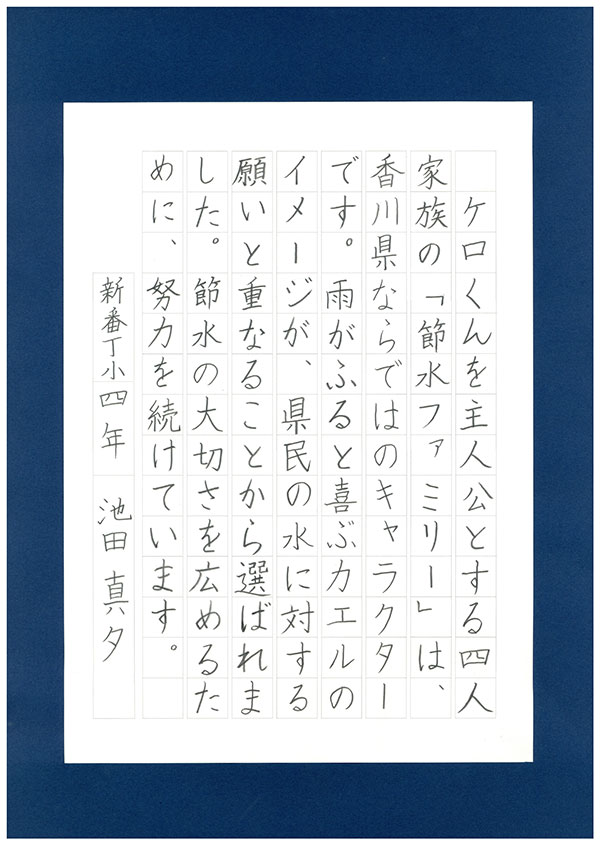 ケロくんを主人公とする四人
家族の「節水ファミリー」は、
香川県ならではのキャラクター
です。雨がふると喜ぶカエルの
イメージが、県民の水に対する
願いと重なることから選ばれま
した。節水の大切さを広めるた
めに、努力を続けています。
新番丁小四年 池田真夕